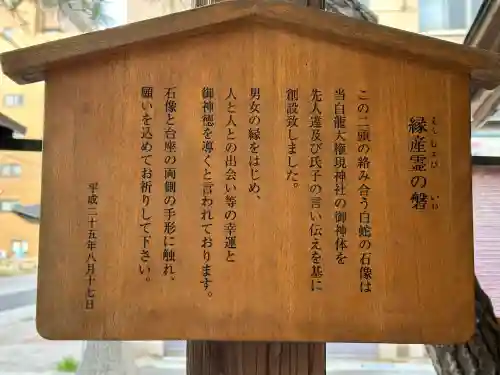 縁産霊の磐
えんむすびのいわ
この二頭の絡み合う白蛇の石像は
当白龍大権現神社の御神体を
先人達及び氏子の言い伝えを基に
創設致しました。
男女の縁をはじめ、
人と人との出会い等の幸運と
御神徳を導くと言われております。
石像と台座の両側の手形に触れ、
願いを込めてお祈りして下さい。
平成二十五年八月十七日